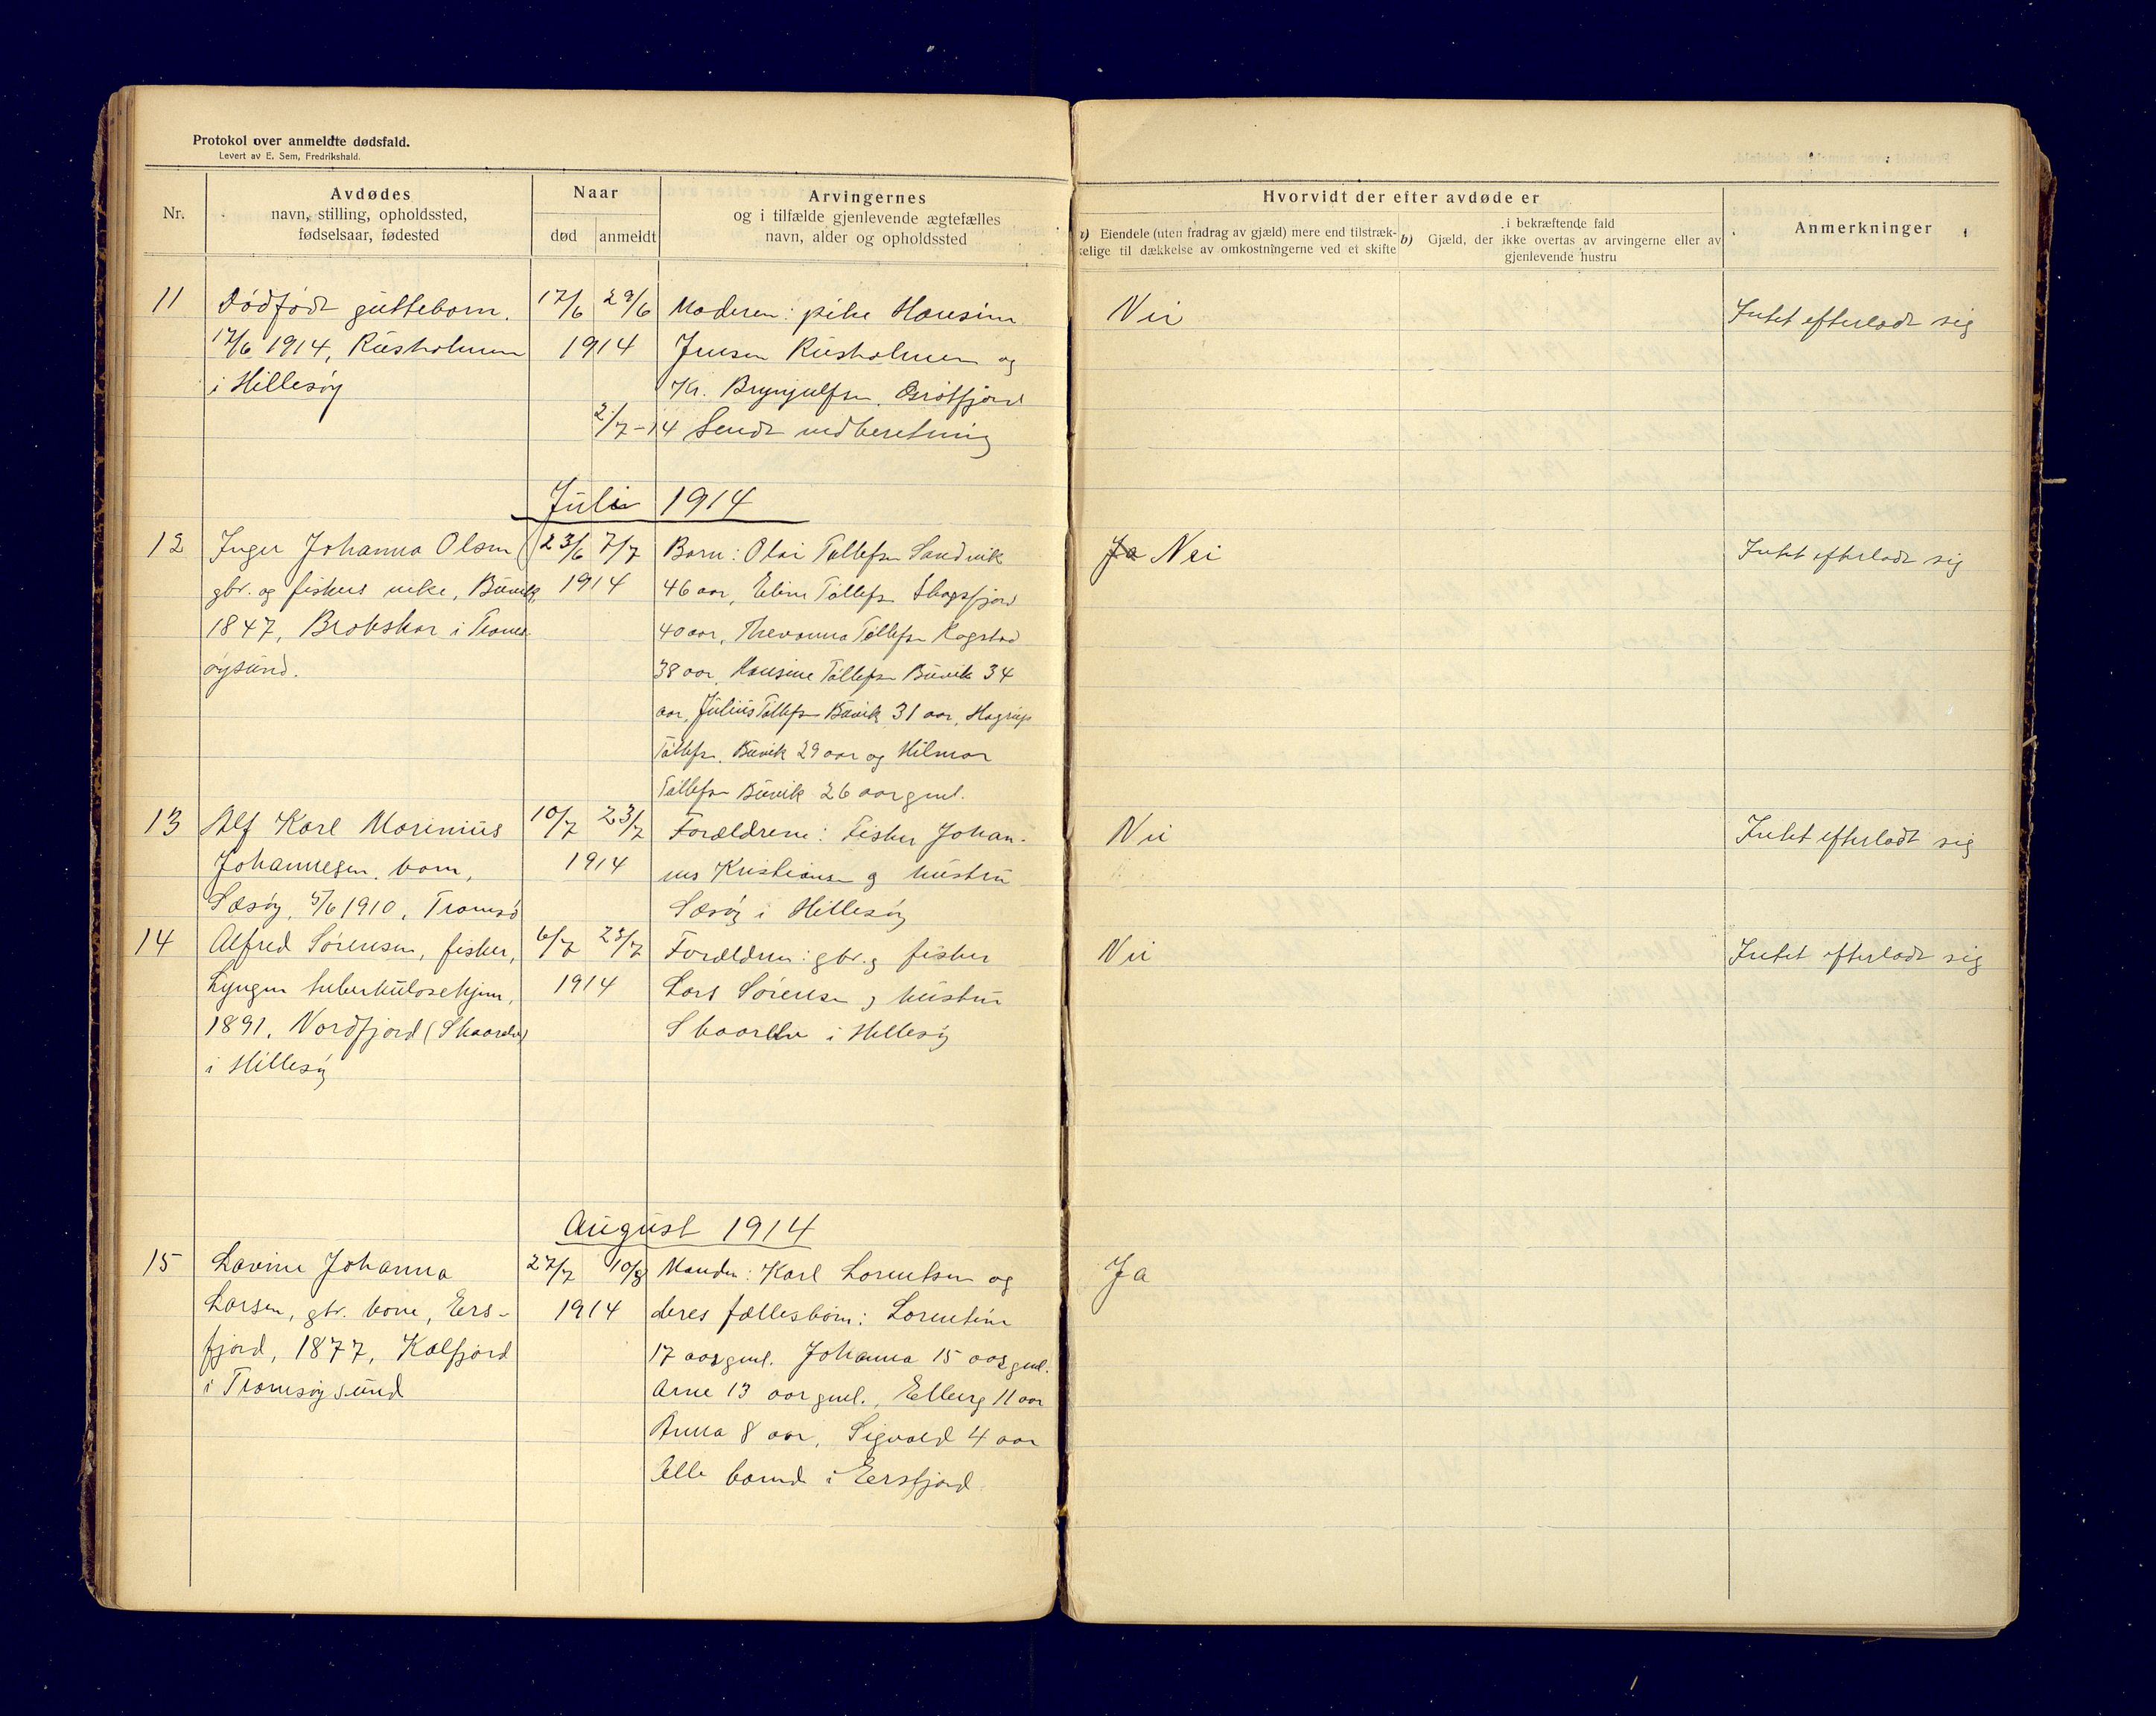 Protokol over anmeldte dødsfald.
Levert av E. Sem, Fredrikshald.
Nr.
Avdødes
navn, stilling, opholdssted,
fødselsaar, fødested
Naar
død
anmeldt
Arvingernes
og i tilfælde gjenlevende ægtefælles
navn, alder og opholdssted
Hvorvidt der efter avdøde er
a) Eiendele (uten fradrag av gjæld) mere end tilstræk-
kelige til dækkelse av omkostningerne ved et skifte
i bekræftende fald
b) Gjæld, der ikke overtas av arvingerne eller av
gjenlevende hustru
Anmerkninger
11
Dødfødt guttebarn.
17/6 1914, Rusholmen
i Hillesøy
17/6 29/6
1914
Moderen: pike Hansine
Jensen Rusholmen og
Kr. Brynjulfsen, Grøtfjord
2/7-14 Sendt indberetning
Nei
Intet efterladt sig
Juli 1914
12
Inger Johanna Olsen
gbr. og fiskers enke, Buvik,
1847, Brokskar i Troms-
øysund.
23/6 7/7
1914
Barn: Olai Tollefsen Sandvik
46 aar, Eline Tollefsen Skogsfjord
40 aar, Thevanna Tollefsen Kogstad
38 aar, Hansine Tollefsen Buvik 34
aar, Julius Tollefsen Buvik 31 aar, Hagrup
Tollefsen Buvik 29 aar og Hilmar
Tollefsen Buvik 26 aar gml.
Ja Nei
Intet efterladt sig
13
Alf Karl Marinius
Johannesen, barn,
Sæsøy, 5/6 1910, Tromsø
10/7 23/7
1914
Forældrene: Fisker Johan-
nes Kristiansen og hustru
Sæsøy i Hillesøy
Nei
Intet efterladt sig
14
Alfred Sørensen, fisker,
Lyngen tuberkulosehjem,
1891, Nordfjord (Skaarelv)
i Hillesøy
6/7 23/7
1914
Forældrene: gbr. og fisker
Lars Sørensen og hustru
Skaarelv i Hillesøy
Nei
Intet efterladt sig
August 1914
15
Lavine Johanna
Larsen, gbr. kone, Eers-
fjord, 1877, Kalfjord
i Tromsøysund
27/7 10/8
1914
Manden: Karl Lorentsen og
deres fællesbarn: Lorentine
17 aar gml. Johanna 15 aar gml.
Arne 13 aar gml., Elberg 11 aar
Anna 8 aar, Sigvald 4 aar
Alle boende i Eersfjord
Ja